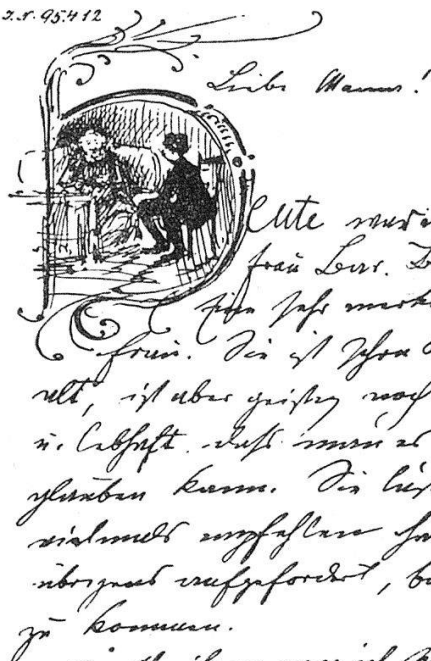 J.N. 95412
Liebe Mama!
Heute war i
Frau Bar. D
Eine sehr merk
Frau. Sie ist schon
alt, ist aber geistig noch
u. lebhaft dass man es
glauben kann. Sie läs
vielmals empfehlen ha
übrigens aufgefordert, b
zu kommen.